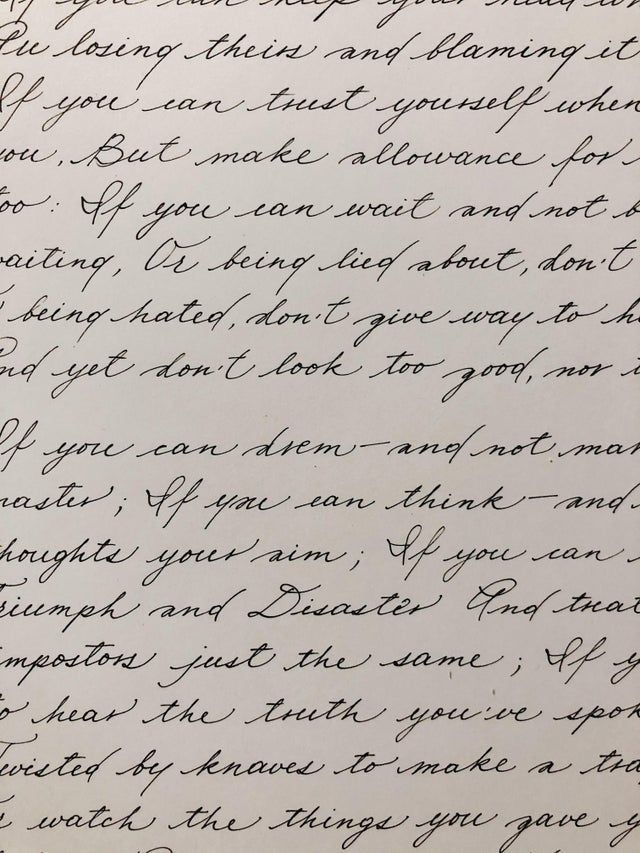 If you can keep your head
losing theirs and blaming it
If you can trust yourself when
you, But make allowance for
too: If you can wait and not b
waiting, Or being lied about, don't
being hated, don't give way to h
And yet don't look too good, nor
If you can drem—and not ma
master; If you can think—and
thoughts your aim; If you can
Triumph and Disaster And treat
impostors just the same; If y
to hear the truth you've spok
Twisted by knaves to make a tra
watch the things you gave y